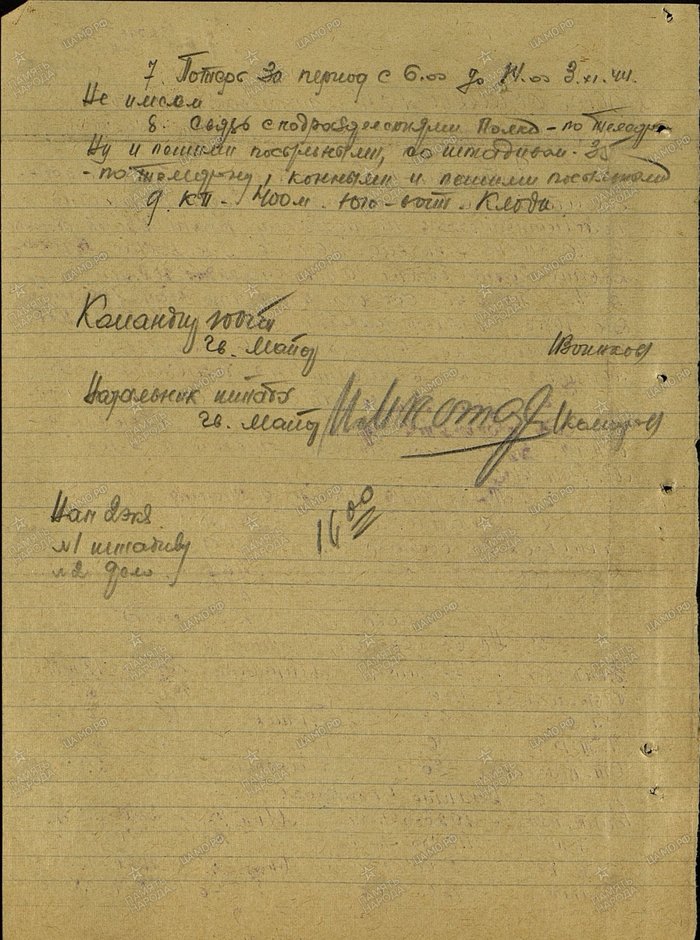 7. Потерь за период с 6.00 до 14.00 3.XI.44.
Не имеем
8. Связь с подразделениями Полка - по телефо
ну и пешими посыльными, со штадивом 35
- по телефону, конными и пешими посыльными
9. КП - 400 м. юго-вост. Клоди.
Командир
гв. Майор
Начальник штаба
гв. Майор
16 00
Нап 2 экз
№1 штадиву
№2 дело